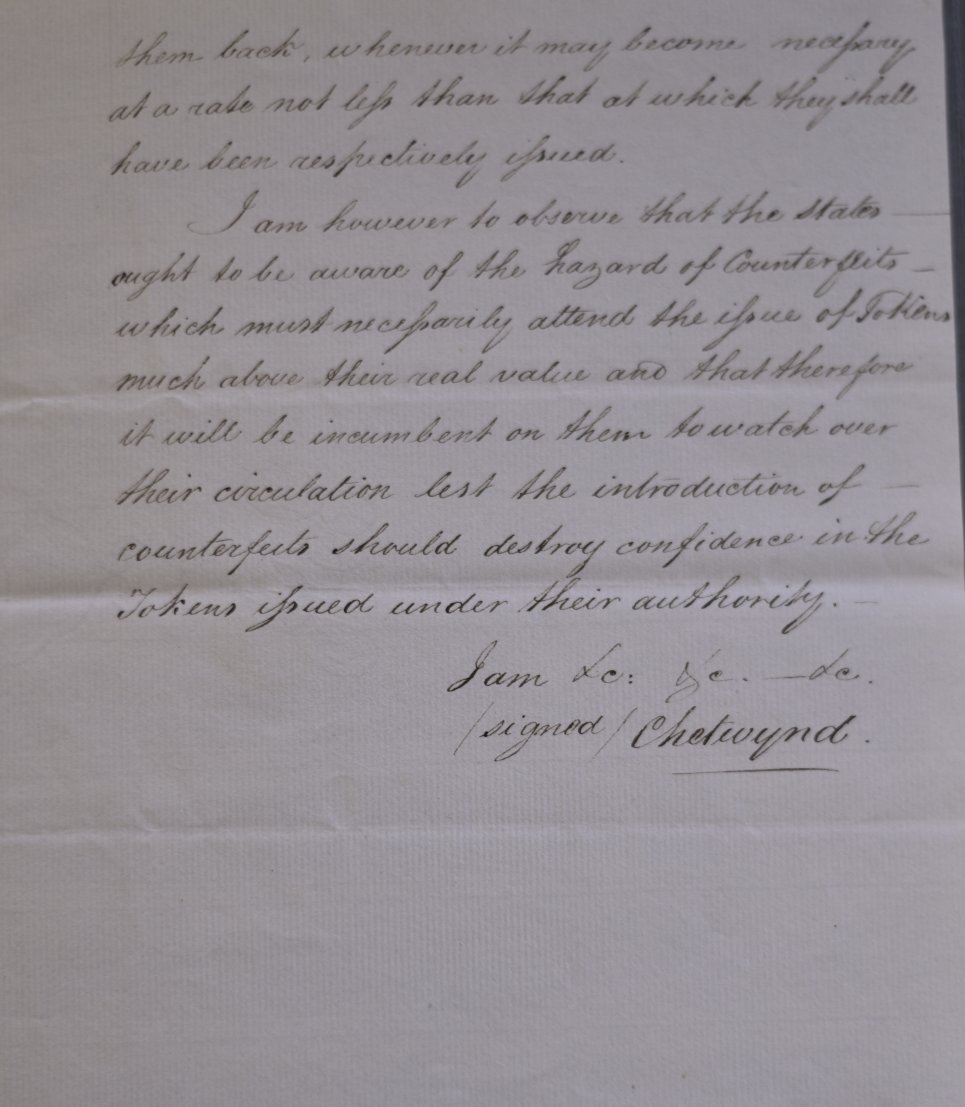 them back, whenever it may become necessary
at a rate not less than that at which they shall
have been respectively issued.
I am however to observe that the States —
ought to be aware of the hazard of Counterfeits —
which must necessarily attend the issue of Tokens
much above their real value and that therefore
it will be incumbent on them to watch over
their circulation lest the introduction of —
counterfeits should destroy confidence in the
Tokens issued under their authority. —
I am &c: &c. — &c.
/signed/ Chetwynd.